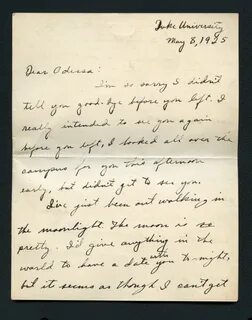 Duke University
May 8, 1935
Dear Odessa:
I'm so sorry I didn't
tell you good-bye before you left. I
really intended to see you again
before you left, I looked all over the
campus for you this afternoon
early, but didn't get to see you.
I've just been out walking in
the moonlight. The moon is so
pretty. I'd give anything in the
world to have a date with you to-night,
but it seems as though I can't get